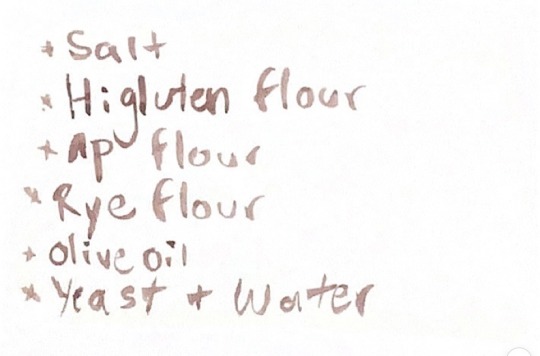 * Salt
* Higluten flour
* Ap flour
* Rye flour
* Olive oil
* Yeast + Water